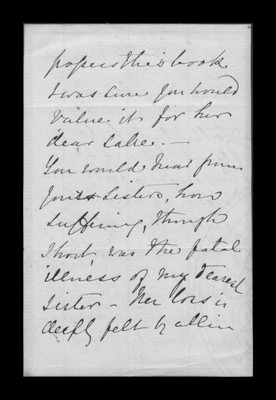 papers this book
I was sure you would
value it for her
dear sake. —
You would hear from
your sisters, how
suffering, though
short, was the fatal
illness of my dearest
sister – Her loss is
deeply felt by all in